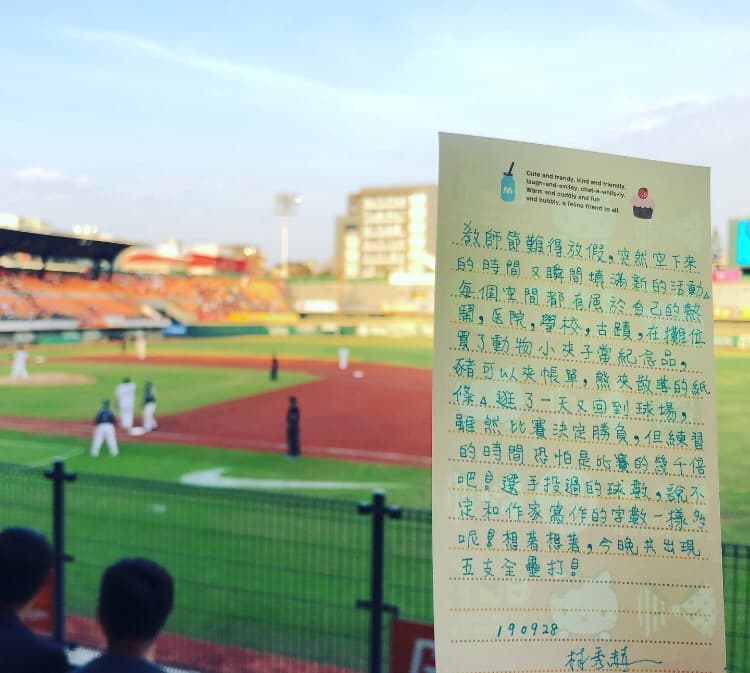 Cute and trendy, kind and friendly,
laugh-and-smiley, chat-a-while-ly.
Warm and cuddly and fun
and bubbly, a feline friend to all.
M
教師節難得放假,突然空下來
的時間又瞬間填滿新的活動。
每個空間都有屬於自己的熱
鬧,医院,學校,古蹟,在攤位
買了動物小夾子當紀念品,
豬可以夾帳單,熊夾散落的紙
條。逛了一天又回到球場,
雖然比賽決定勝負,但練習
的時間恐怕是比賽的幾千倍
吧!選手投過的球數,說不
定和作家寫作的字數一樣多
呢!想著想著,今晚共出現
五支全壘打!
190928